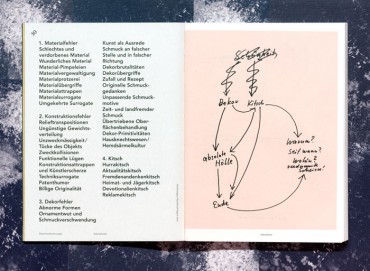 1. Materialfehler
Schlechtes und
verdorbenes Material
Wunderliches Material
Material-Pimpeleien
Materialvergewaltigung
Materialprotzerei
Materialübergriffe
Materialattrappen
Materialsurrogate
Umgekehrte Surrogate
2. Konstruktionsfehler
Relieftranspositionen
Ungünstige Gewichts-
verteilung
Unzweckmässigkeit/
Tücke des Objekts
Zweckkollisionen
Funktionelle Lügen
Konstruktionsattrappen
und Künstlerscherze
Techniksurrogate
Patenthumor
Billige Originalität
3. Dekorfehler
Abnorme Formen
Ornamentwut und
Schmuckverschwendung
Kunst als Ausrede
Schmuck an falscher
Stelle und in falscher
Richtung
Dekorbrutalitäten
Dekorübergriffe
Zufall und Rezept
Originelle Schmuck-
gedanken
Unpassende Schmuck-
motive
Zeit- und landfremder
Schmuck
Übertriebene Ober-
flächenbehandlung
Dekor-Primitivitäten
Hausknechtwesen/
Herdsärmelkultur
4. Kitsch
Hurrakitsch
Aktualitätskitsch
Fremdenandenkenkitsch
Heimat- und Jägerkitsch
Devotionalienkitsch
Reklamekitsch
Dekor Kitsch
absolute
Hölle
Ende
Warum?
Seit wann?
Wohin?